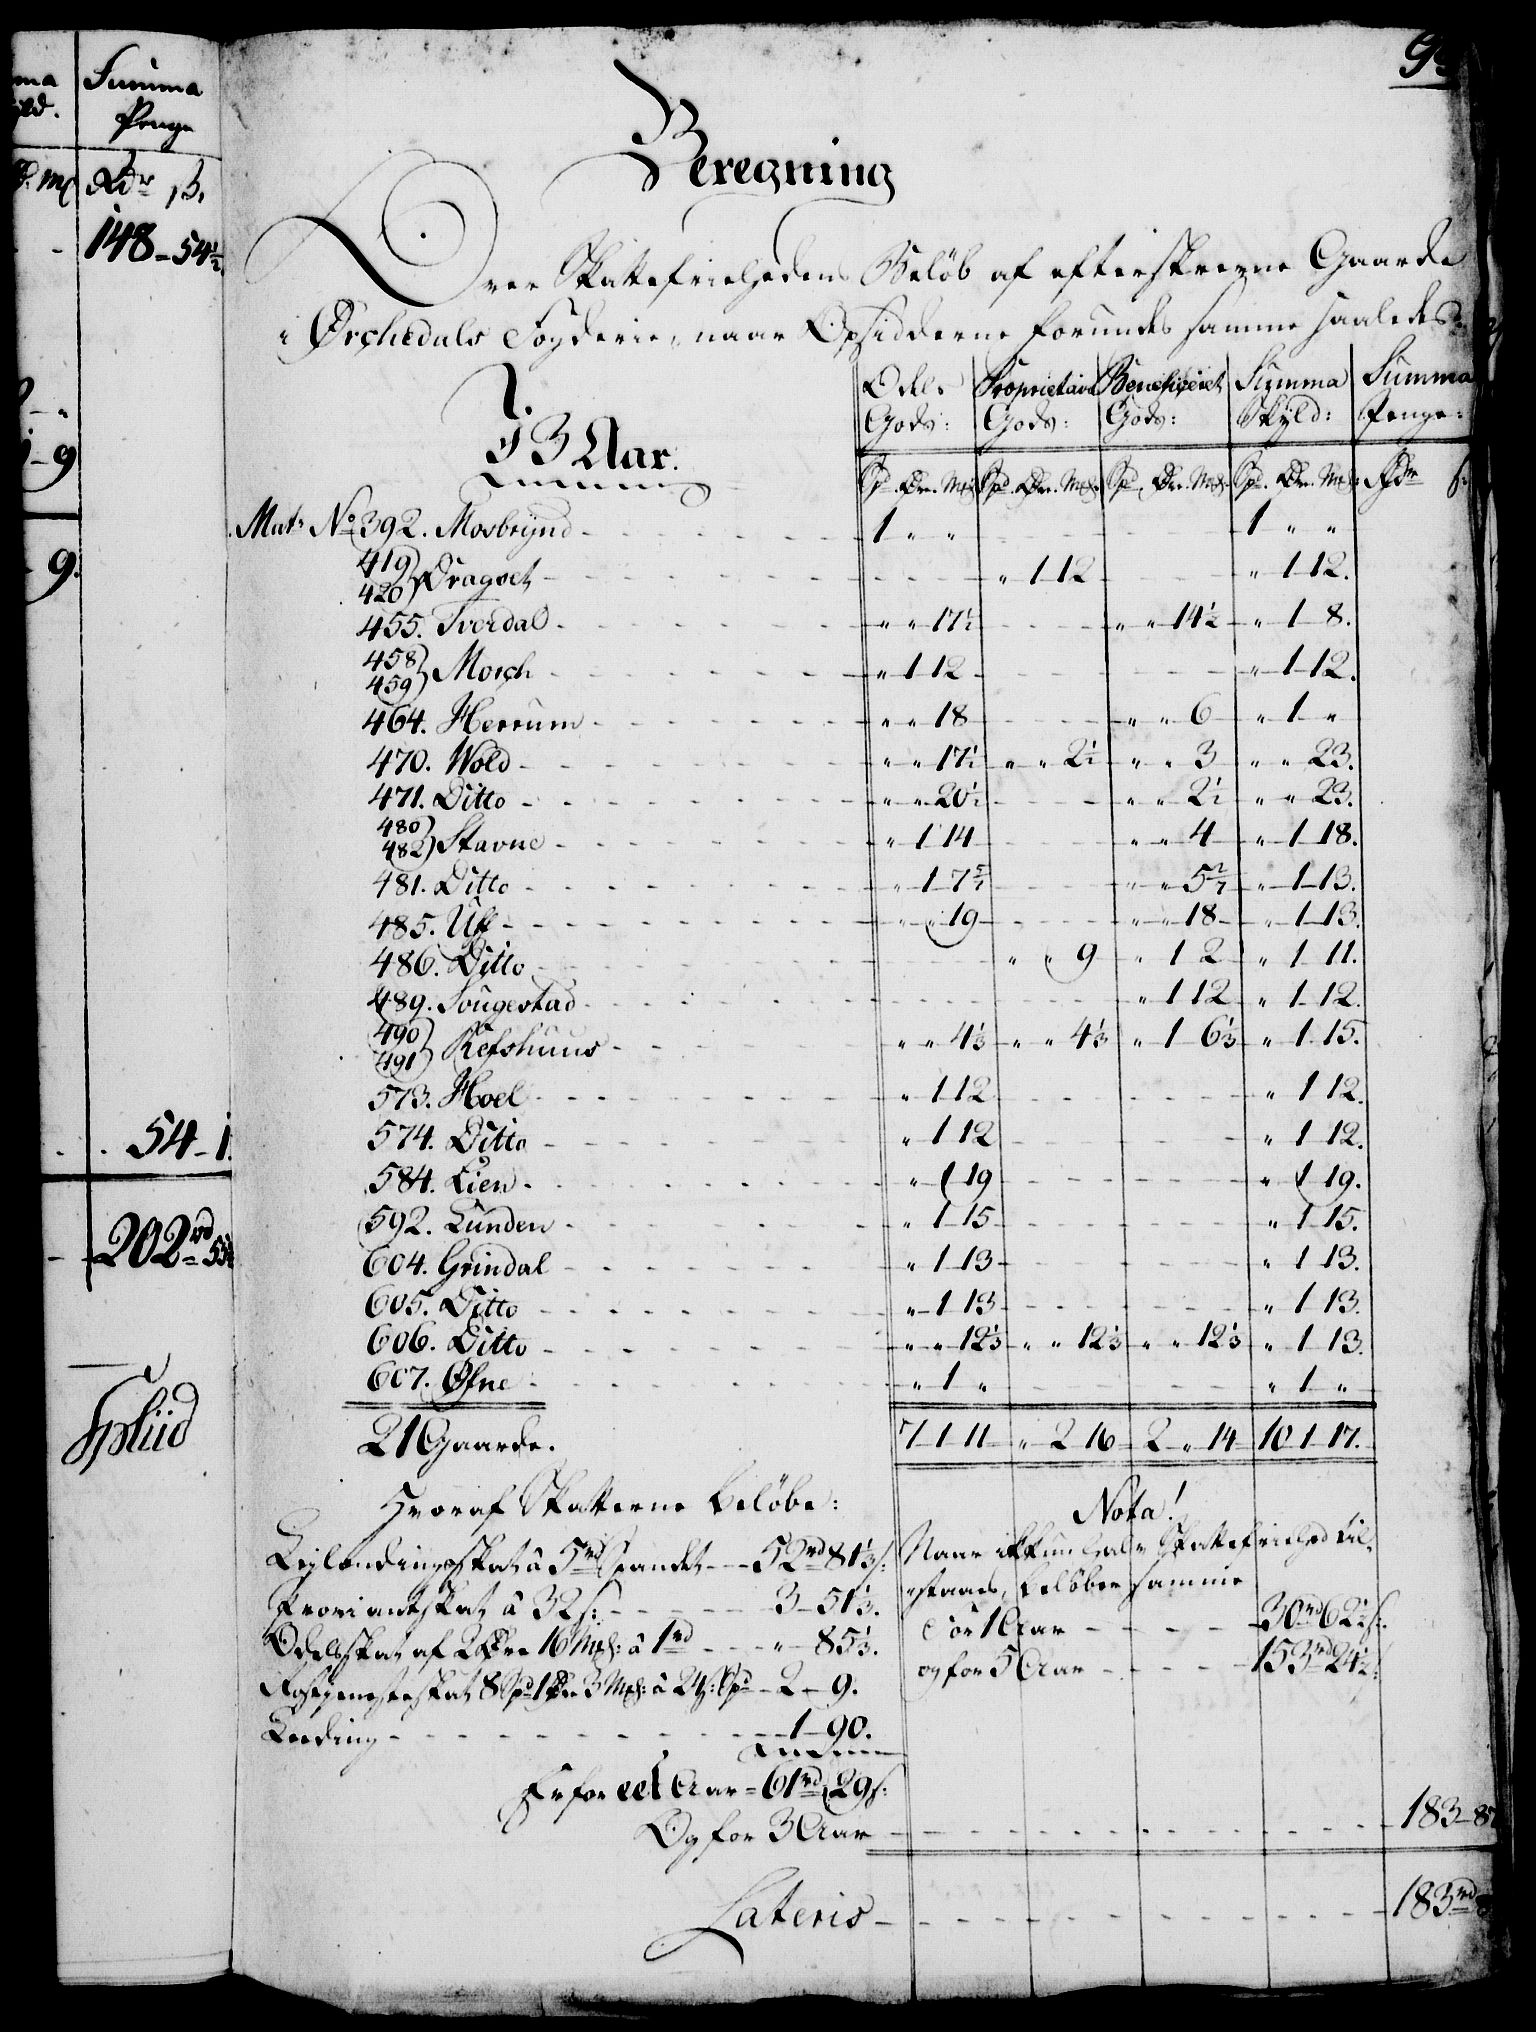 Summa
Penge
Rdr ß.
148 - 54½
9
9.
54 - 1.
202rd 53
9
Beregning
Over Skattefriehedens Beløb af efterskrevne Gaarde
i Ørchedals Fogderie, naar Opsidderne forundes samme saaledes:
I.
I 3 Aar.
Odels Gods: | Proprietair Gods: | Beneficeret Gods: | Summa Skyld: | Summa Penge:
Spd. Ør. Mk: | Spd. Ør. Mk: | Spd. Ør. Mk: | Spd. Ør. Mk: | Rdr ß:
Matr No 392. Mosbrynd - 1 " " - 1 " "
419 420) Dragset - " 1 12 - " 1 12.
455. Tverdal - " " 17½ - " " 14½ - " 1 8.
458 459) Morch - " 1 12 - " 1 12.
464. Herrum - " " 18 - " " 6 - " 1 "
470. Wold - " " 17½ - " " 2½ - " " 3 - " " 23.
471. Ditto - " " 20½ - " " 2½ - " " 23.
480 482) Stavne - " 1 14 - " " 4 - " 1 18.
481. Ditto - " 1 7 5/7 - " " 5 2/7 - " 1 13.
485. Uff - " " 19 - " " 18 - " 1 13.
486. Ditto - " " 9 - " 1 2 - " 1 11.
489. Sougestad - " 1 12 - " 1 12.
490 491) Refshuus - " " 4⅓ - " " 4⅓ - " 1 6⅓ - " 1 15.
573. Hoel - " 1 12 - " 1 12.
574. Ditto - " 1 12 - " 1 12.
584. Lien - " 1 19 - " 1 19.
592. Lunden - " 1 15 - " 1 15.
604. Grindal - " 1 13 - " 1 13.
605. Ditto - " 1 13 - " 1 13.
606. Ditto - " " 12⅓ - " " 12⅓ - " " 12⅓ - " 1 13.
607. Øfne - " 1 " - " 1 "
21 Gaarde. 7 1 11 - " 2 16 - 2 " 14 - 10 1 17.
Hvoraf Skatterne beløbe:
Leylendingsskat â 5rd Spandet - 52rd 81⅓ ß:
Proviantskat â 32 ß: - 3 - 51⅓.
Odelsskat af 2 Øre 16 Mk: â 1rd - " - 85⅓.
Rostjenesteskat 8 Spd 1 Øre 3 Mk: â 24 ß: Spd - 2 - 9.
Leeding - 1 - 90.
Er for eet Aar = 61rd 29 ß:
Og for 3 Aar - 183 - 87
Nota!
Naar ikkun halv Skattefriehed til-
staaes, beløber samme
for 1 Aar - 30rd 62½ ß:
og for 5 Aar - 153rd 24½:
Lateris - 183rd